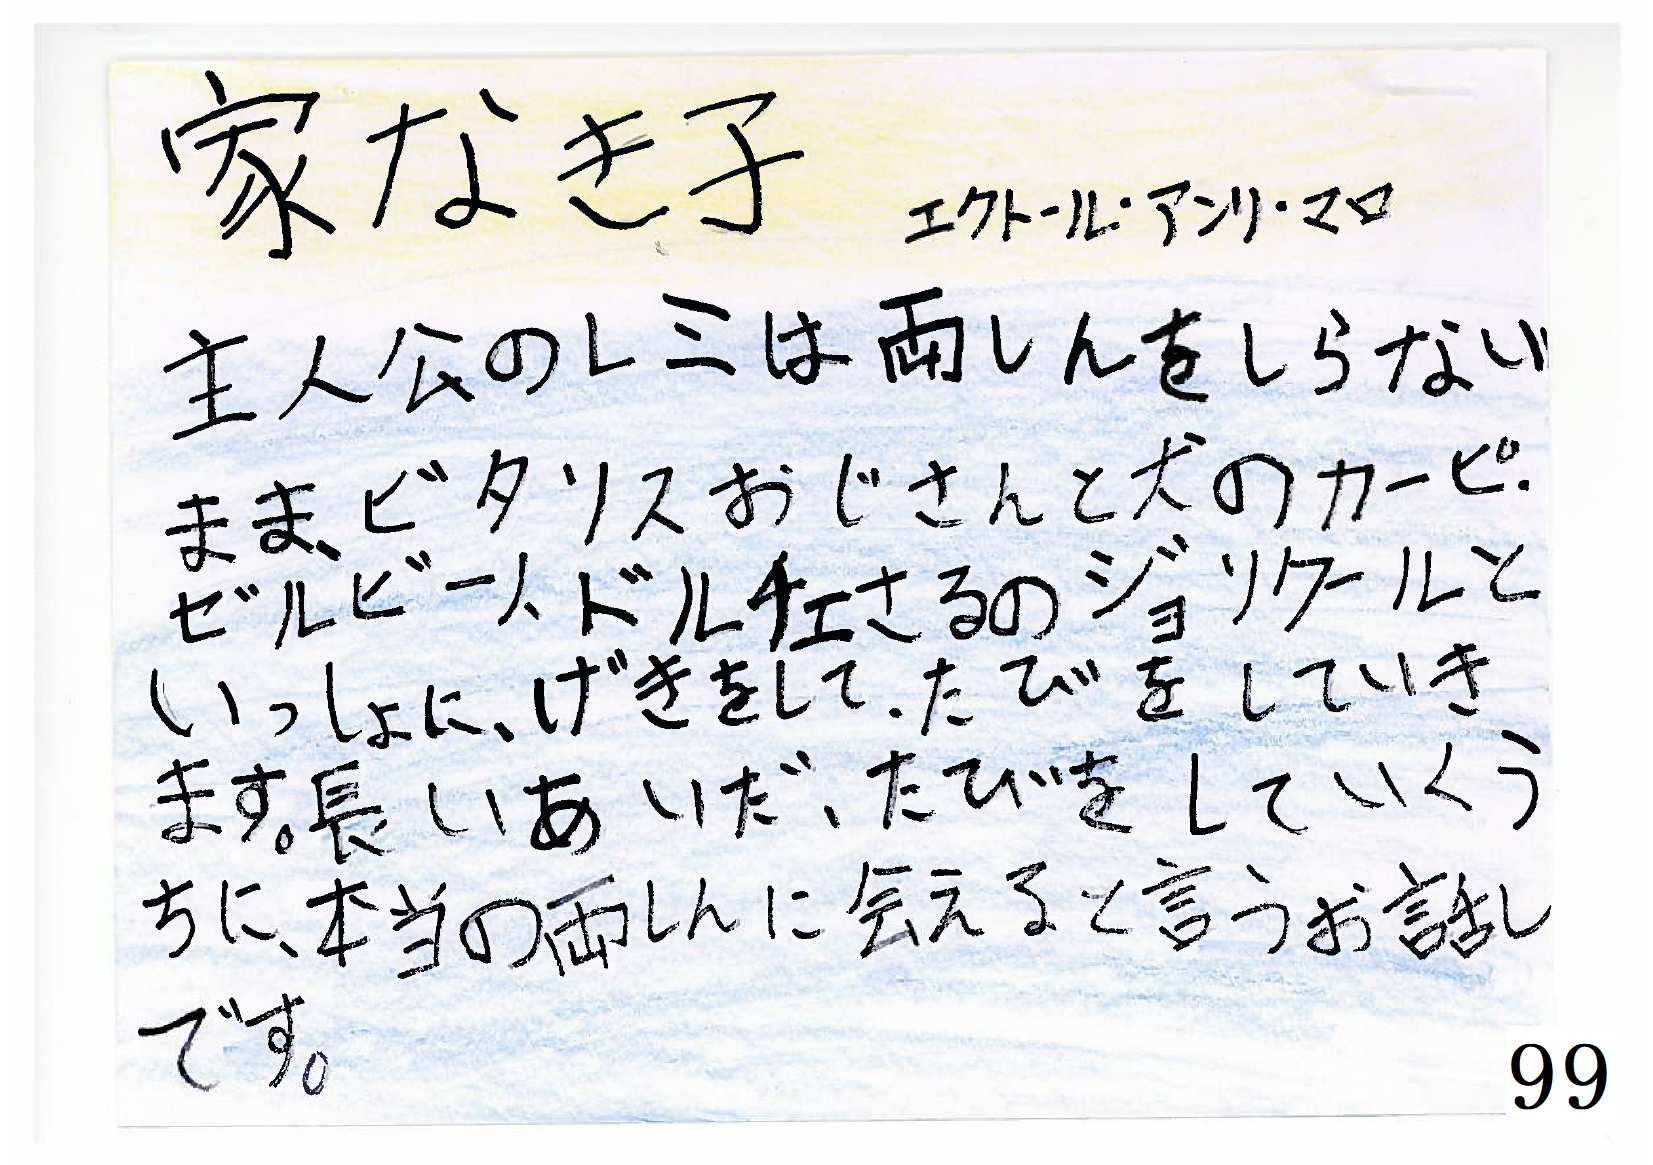 家なき子
エクトール・アンリ・マロ
主人公のレミは両しんをしらない
まま、ビタリスおじさんと犬のカーピ.
ゼルビーノ、ドルチェさるのジョリクールと
いっしょに、げきをして、たびをしていき
ます。長いあいだ、たびをしていくう
ちに、本当の両しんに会えると言うお話し
です。
99